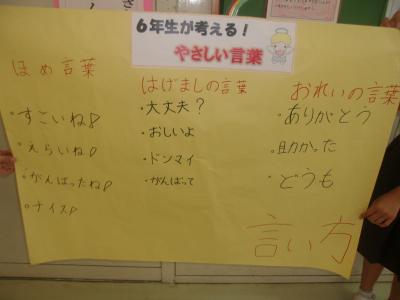 6年生が考える!
やさしい言葉
ほめ言葉
・すごいね♪
・えらいね♪
・がんばったね♪
・ナイス♪
はげましの言葉
・大丈夫?
・おしいよ
・ドンマイ
・がんばって
おれいの言葉
・ありがとう
・助かった
・どうも
言い方